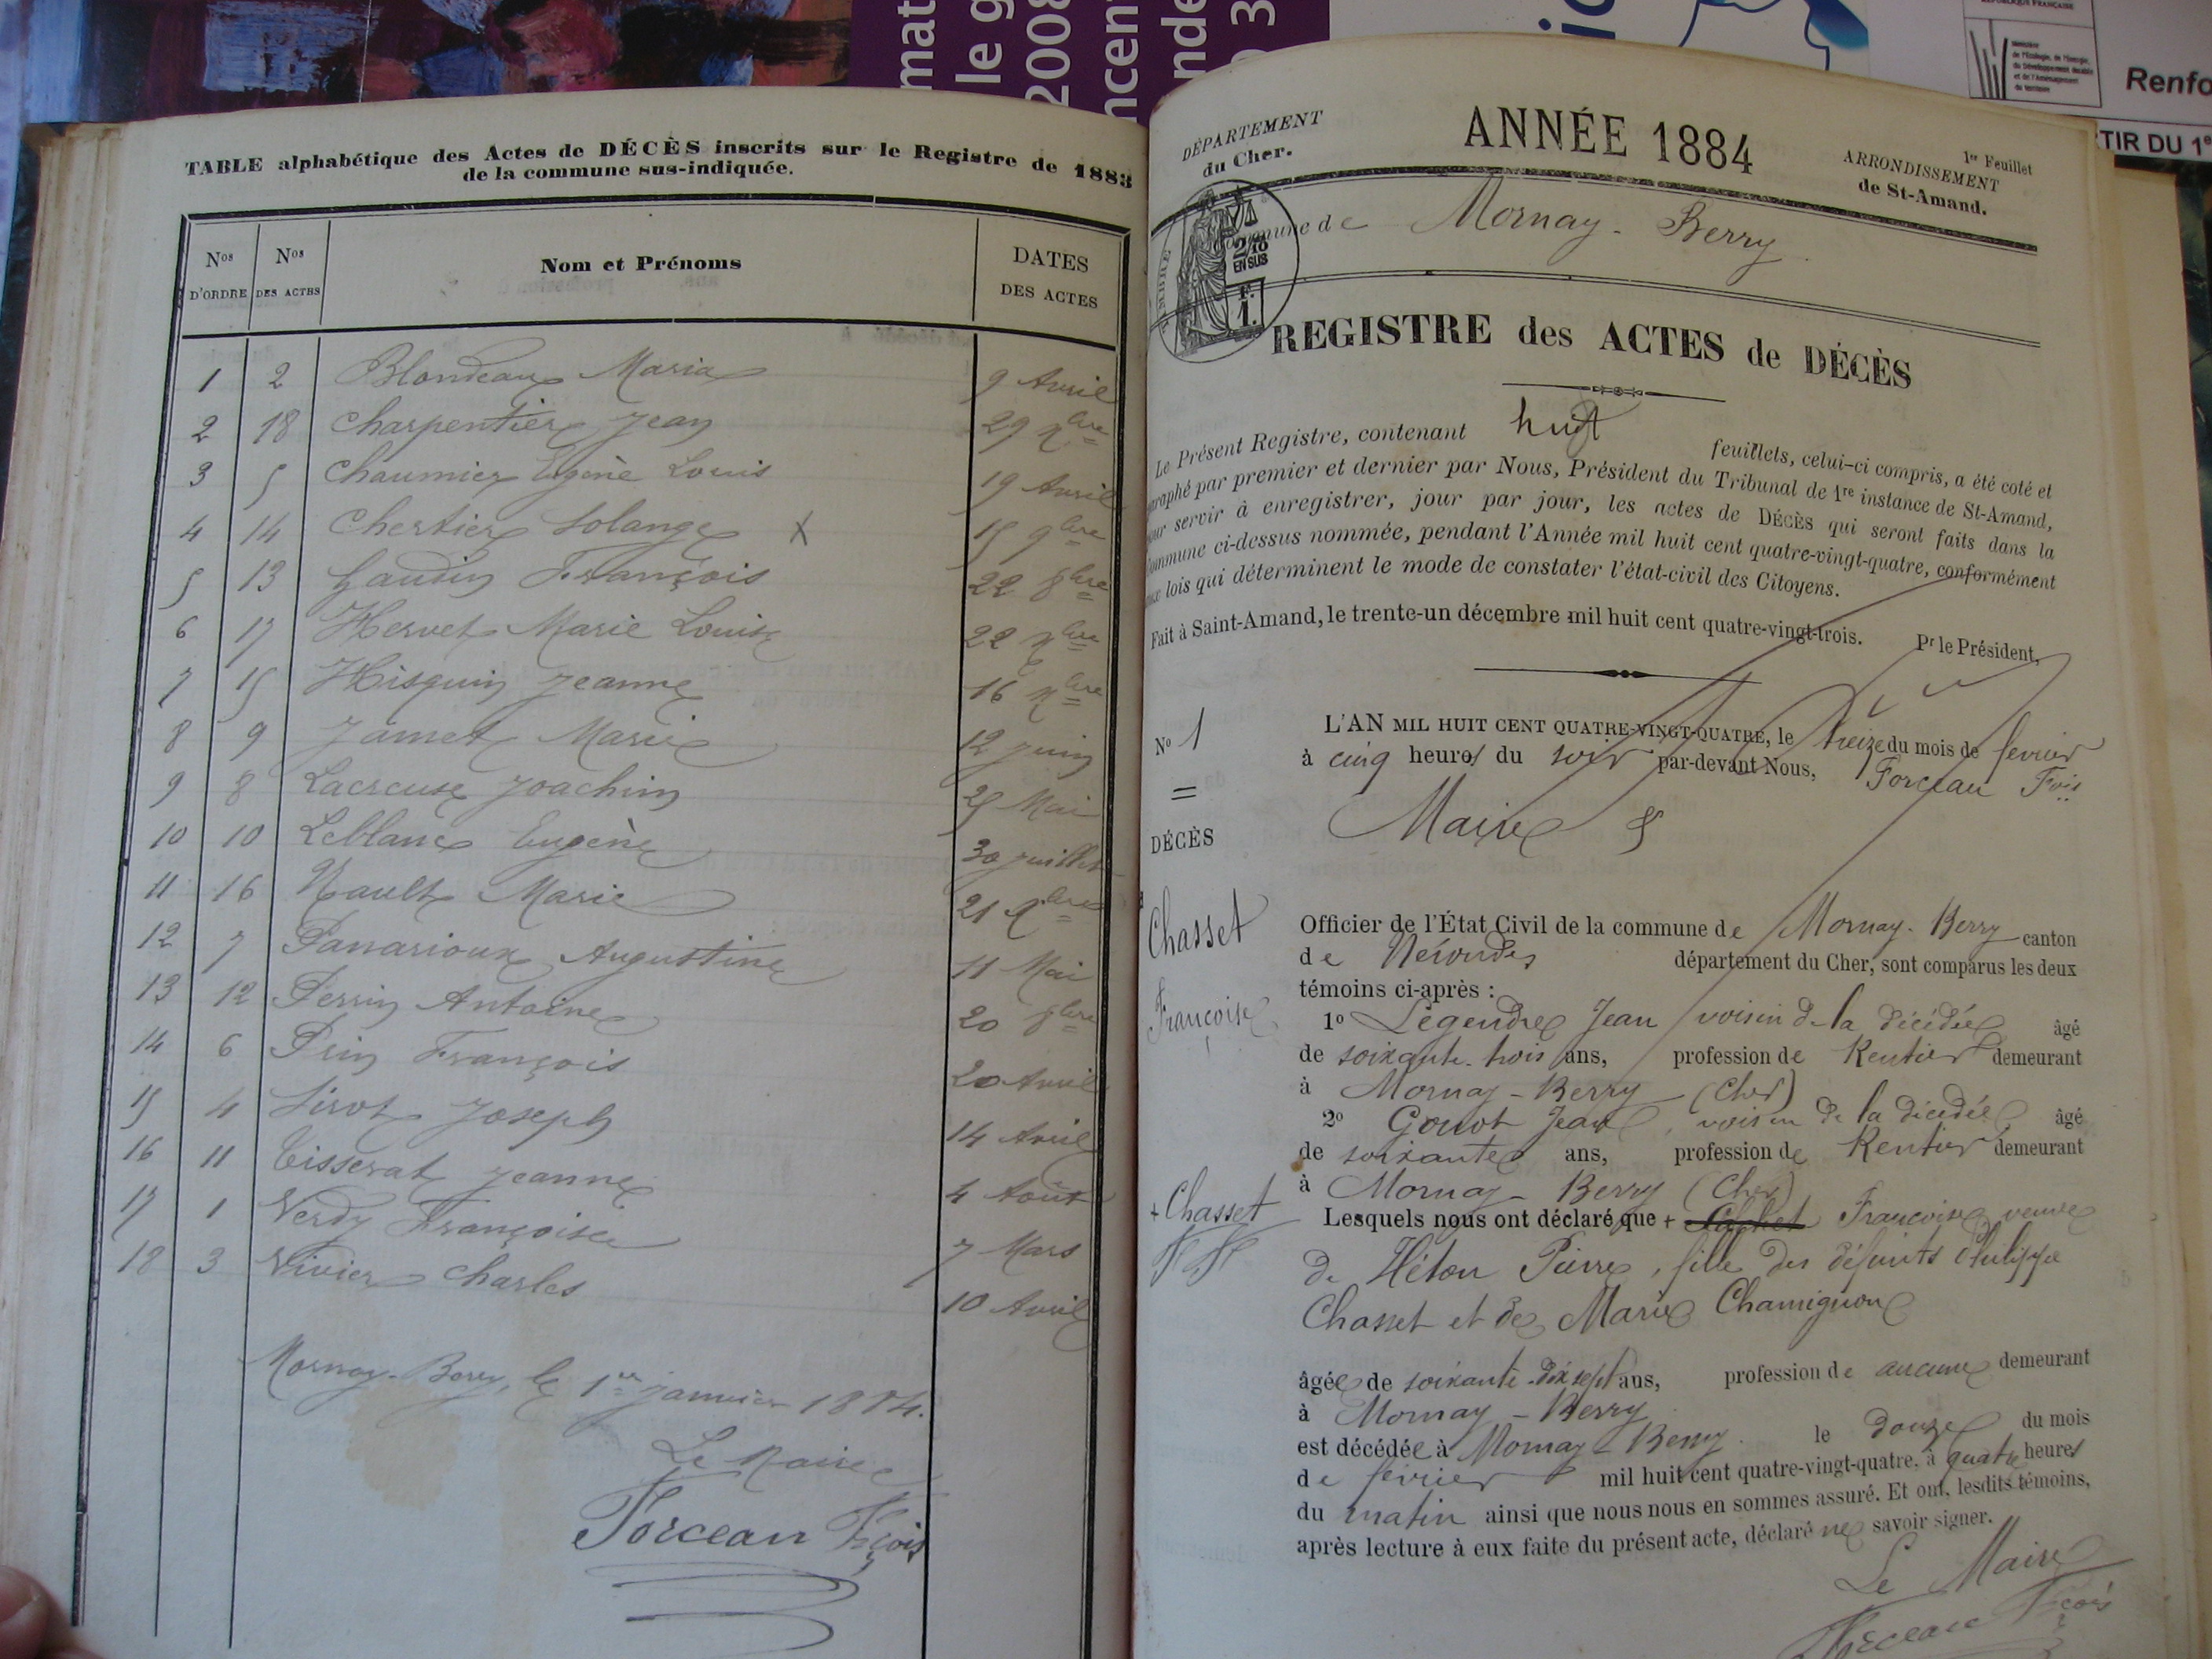 mat
le g
2008
ncent
nde
3
RÉPUBLIQUE FRANÇAISE
Renfo
TIR DU 1
TABLE alphabétique des Actes de DÉCÈS inscrits sur le Registre de 1883
de la commune sus-indiquée.
Nos D'ORDRE
Nos DES ACTES
Nom et Prénoms
DATES DES ACTES
1 2 Blondeau Maria 9 Avril
2 18 Charpentier Jean 29 Xbre
3 5 Chaumier Eugène Louis 19 Avril
4 14 Chertier Solange X 15 9bre
5 13 Gaudin François 22 8bre
6 17 Hervet Marie Louise 22 Xbre
7 15 Hisquin Jeanne 16 Xbre
8 9 Jamet Marie 12 Juin
9 8 Lacreuse Joachim 25 Mai
10 10 Leblanc Eugène 30 Juillet
11 16 Nault Marie 21 Xbre
12 7 Panarioux Augustine 11 Mai
13 12 Perrin Antoine 20 8bre
14 6 Prin François 20 Avril
15 4 Sirot Joseph 14 Avril
16 11 Tisserat Jeanne 4 Août
17 1 Verdy Françoise 7 Mars
18 3 Vivier Charles 10 Avril
Mornay-Berry, le 1er janvier 1884.
Le Maire
Forceau Fçois
DÉPARTEMENT
du Cher.
ANNÉE 1884
1er Feuillet
ARRONDISSEMENT
de St-Amand.
Commune de Mornay-Berry
2/10
EN SUS
F.
1.
REGISTRE des ACTES de DÉCÈS
Le Présent Registre, contenant huit feuillets, celui-ci compris, a été coté et
paraphé par premier et dernier par Nous, Président du Tribunal de 1re instance de St-Amand,
pour servir à enregistrer, jour par jour, les actes de DÉCÈS qui seront faits dans la
Commune ci-dessus nommée, pendant l'Année mil huit cent quatre-vingt-quatre, conformément
aux lois qui déterminent le mode de constater l'état-civil des Citoyens.
Fait à Saint-Amand, le trente-un décembre mil huit cent quatre-vingt-trois.
Pr le Président,
No 1
DÉCÈS
Chasset
Françoise
L'AN MIL HUIT CENT QUATRE-VINGT-QUATRE, le treize du mois de février
à cinq heures du soir par-devant Nous, Forceau Fois
Maire &
Officier de l'État Civil de la commune de Mornay-Berry canton
de Nérondes département du Cher, sont comparus les deux
témoins ci-après :
1o Legendre Jean voisin de la décédée âgé
de soixante-trois ans, profession de Rentier demeurant
à Mornay-Berry (Cher)
2o Gouot Jean, voisin de la décédée âgé
de soixante ans, profession de Rentier demeurant
à Mornay-Berry (Cher)
+ Chasset
Lesquels nous ont déclaré que + Françoise veuve
de Héton Pierre, fille des défunts Philippe
Chasset et de Marie Chamignon
âgée de soixante-dix sept ans, profession de aucune demeurant
à Mornay-Berry
est décédée à Mornay-Berry le douze du mois
de février mil huit cent quatre-vingt-quatre, à quatre heures
du matin ainsi que nous nous en sommes assuré. Et ont, lesdits témoins,
après lecture à eux faite du présent acte, déclaré ne savoir signer.
Le Maire
Forceau Fçois